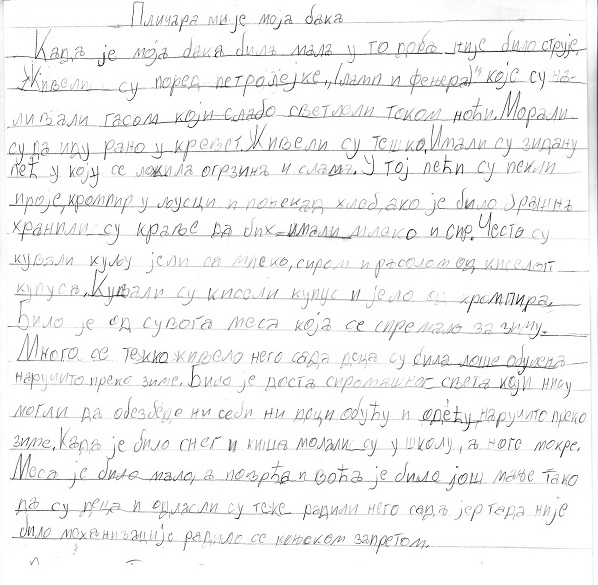 Пличара ми је моја бака
Када је моја бака била мала у то доба није било струје.
Живели су поред петролејке „(ламп и фенера)" које су ча-
ливали гасом који слабо светлели током ноћи. Морали
су да иду рано у кревет. Живели су тешко. Имали су зидану
пећ у коју се ложила огрзина и слама. У тој пећи су пекли
проје, кромпир у љусци и понекад хлеб, ако је било брашна
хранили су крање да бих имали млеко и сир. Често су
кували куљу јели са млеко, сиром и расолом од киселог
купуса. Кували су кисели купус и јело од кромпира.
Било је од сувога меса која се спремало за зиму.
Много се тежко живело него сада деца су била лоше обучена
наручито преко зиме. Било је доста сиромашног света који нису
могли да обезбеде ни себи ни деци обућу и одећу, наручито преко
зиме. Када је било снег и киша молали су у школу, а ноге мокре.
Меса је било мало, а поврћа и воћа је било још мање тако
да су деца и одласли су теже радили него сада јер тада није
било механизације радило се коњском запретом.